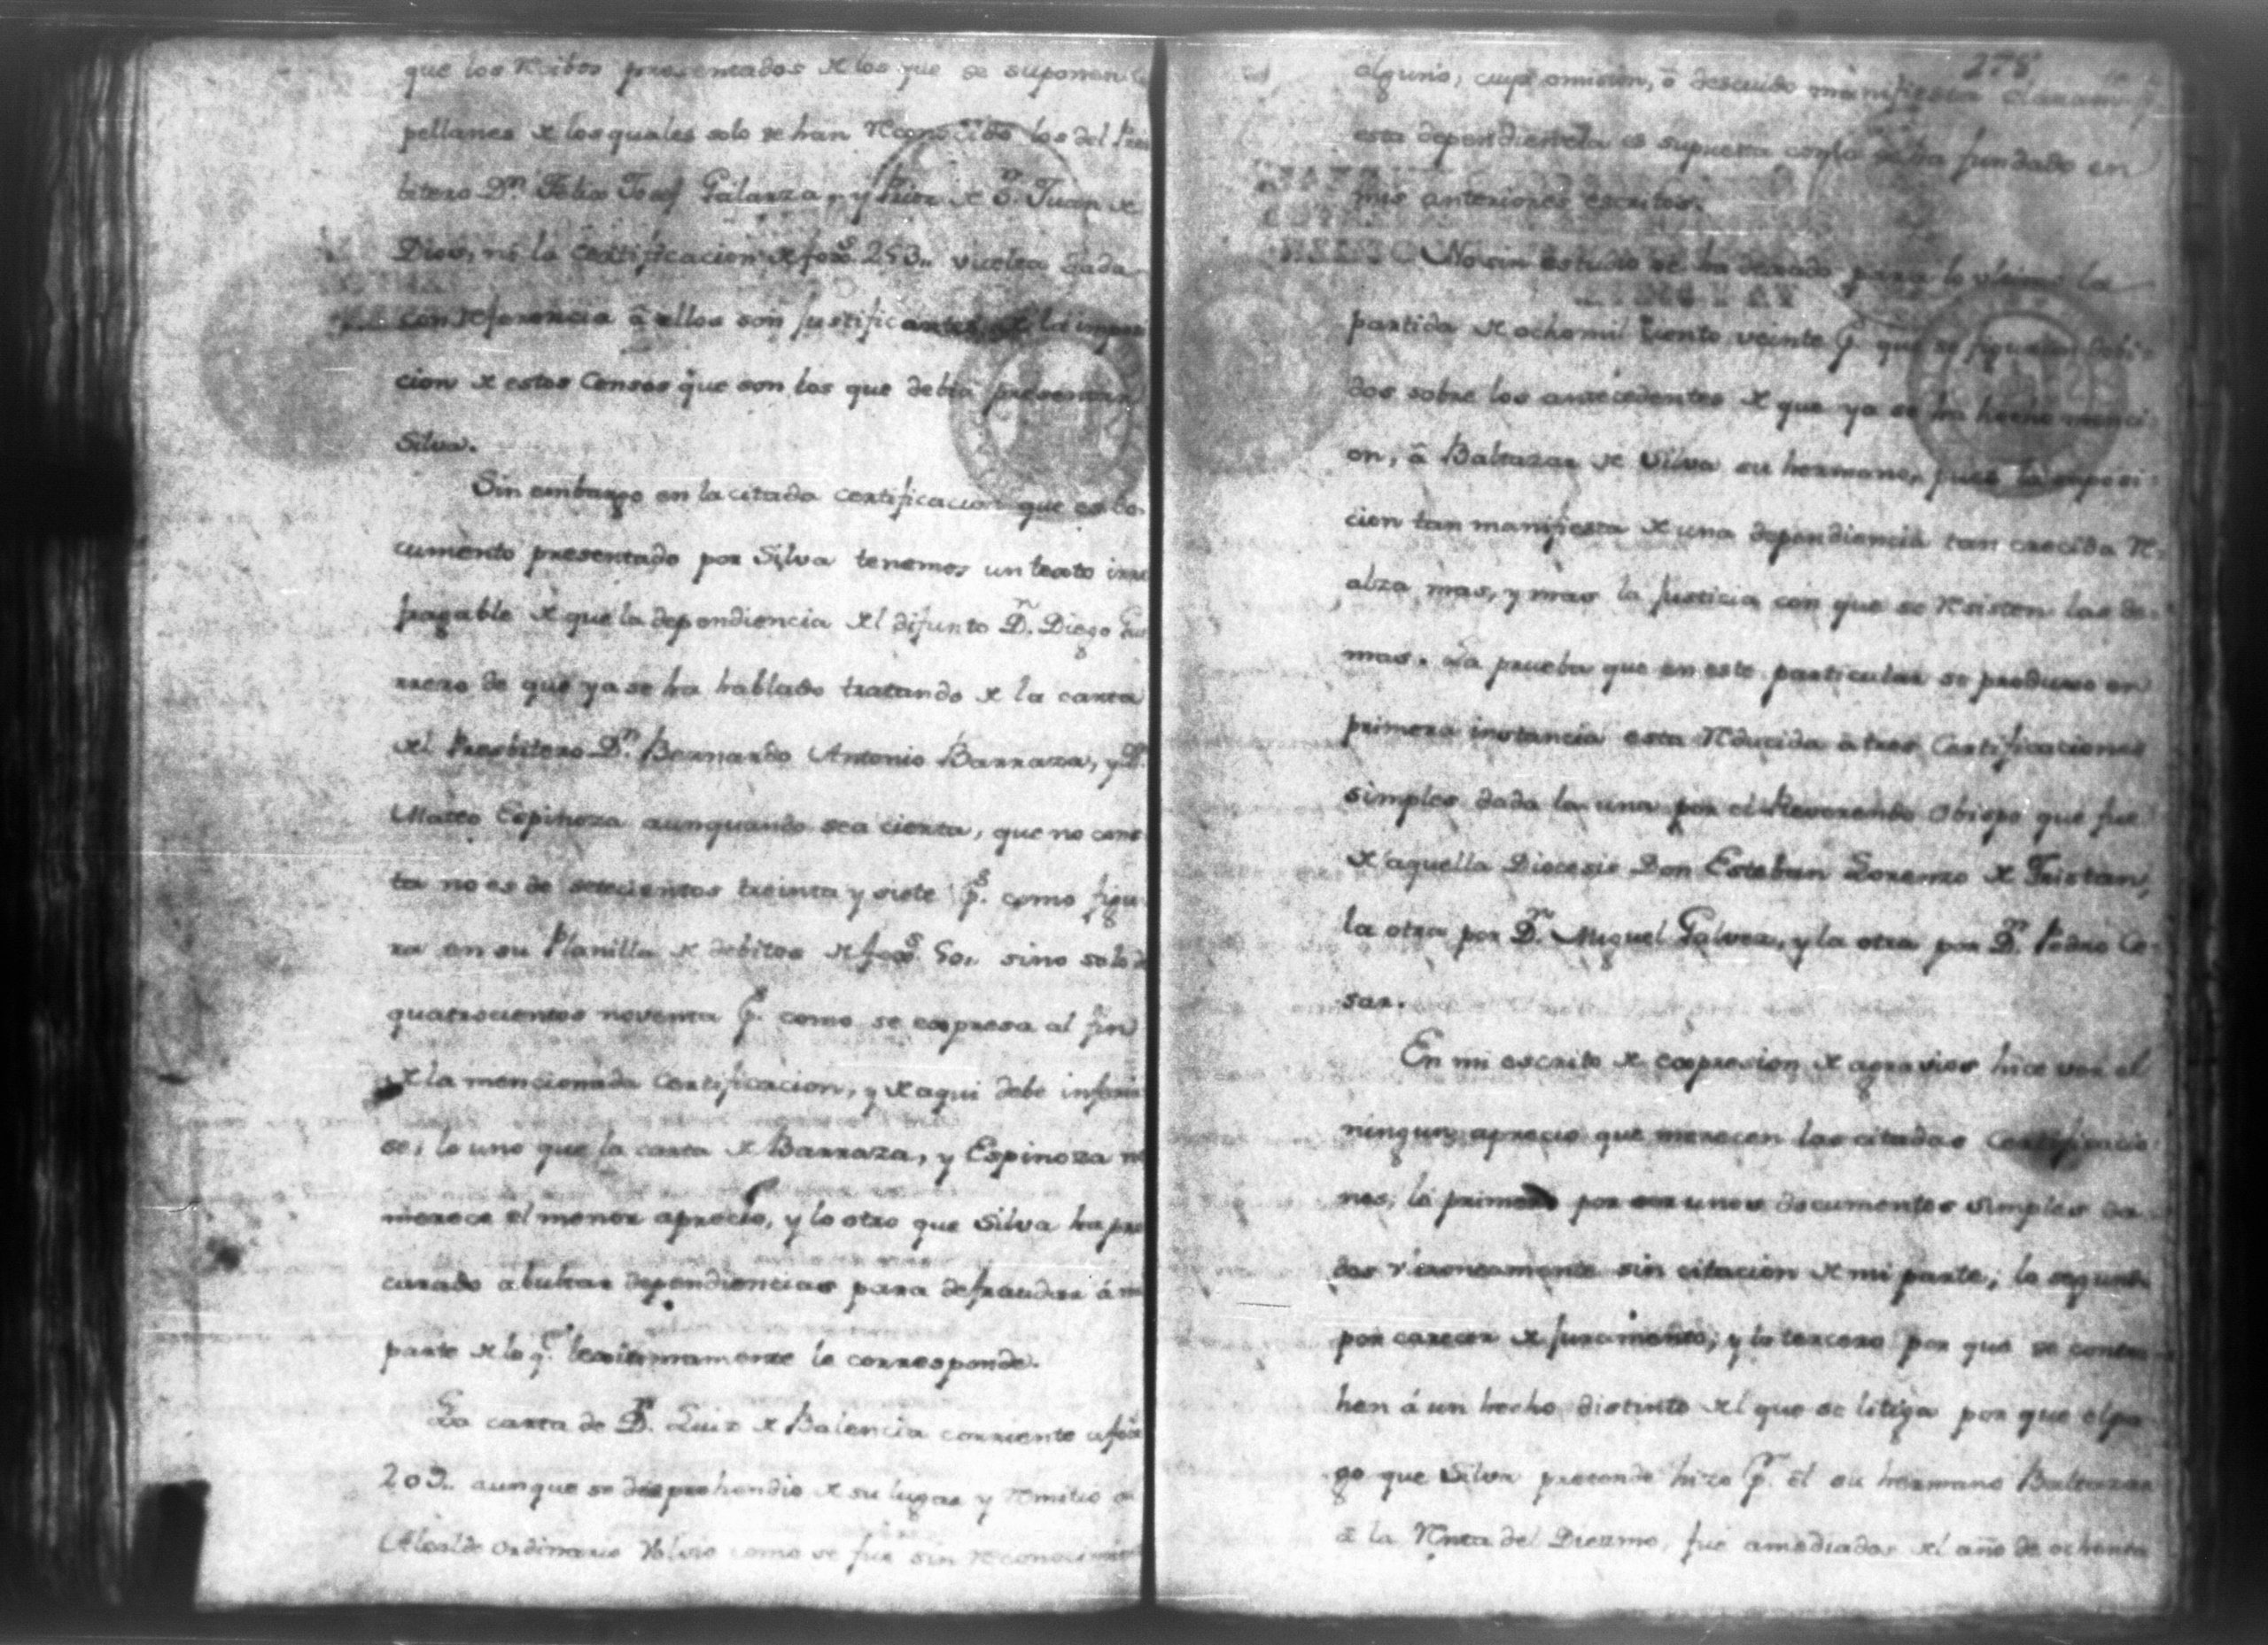 que los Rcibos presentados de los que se suponen
pellanes de los quales solo se han Rconocido los del Pres
bitero Dn. Felix Josef Galarza, y Prior de Sn. Juan de
Dios, ni la certificacion de foxs. 253.. vuelta dada
con Rferencia â ellos son justificantes de la impoz
cion de estos Censos que son los que debia presentar
Silva.
Sin embargo en la citada certificacion que es do-
cumento presentado por Silva tenemos un texto irre
fragable de que la dependiencia del difunto Dn. Diego Gue
rrero de que ya se ha hablado tratando de la carta
del Presbitero Dn. Bernardo Antonio Barraza, y Dn.
Mateo Espinoza aunquando sea cierta, que no cons
ta no es de setecientos treinta y siete ps. como figu
ra en su Planilla de debitos de foxs. 50.. sino solo de
quatrocientos noventa ps. como se expresa al fin
de la mencionada Certificacion, y de aqui debe inferir
se; lo uno que la carta de Barraza, y Espinoza no
merece el menor aprecio, y lo otro que Silva ha pro
curado abultar dependiencias para defraudar á mi
parte de lo q. lexitimamente le corresponde.
La carta de Dn. Luis de Balencia corriente a foxs
203.. aunque se desprehendio de su lugar y Rmitio al
Alcalde ordinario volvio como se fue sin Rconocimien
278
alguno, cuya omision, ô descuido manifiesta claram
esta dependiencia es supuesta como se ha fundado en
mis anteriores escritos.
No sin estudio se ha dexado para lo ultimo la
partida de ocho mil ciento veinte ps. que se figuran debi-
dos sobre los antecedentes de que ya se ha hecho menci-
on, â Baltazar de Silva su hermano, pues la suposi-
cion tan manifiesta de una dependiencia tan crecida R-
alza mas, y mas la justicia con que se Rsisten las de-
mas. La prueba que en este particular se produxo en
primera instancia esta Rducida â tres Certificaciones
simples dada la una por el Reverendo Obispo que fue
de aquella Diocesis Don Esteban Lorenzo de Tristan,
la otra por Dn. Miguel Galvez, y la otra por Dn. Pedro Ce-
sar.
En mi escrito de expresion de agravios hice ver el
ningun aprecio que merecen las citadas Certificacio-
nes, lo primero por ser unos documentos simples da-
dos sin citacion de mi parte; lo segundo
por carecer de juramento; y lo tercero por que se contra
hen á un hecho distinto del que se litiga por que el pa-
go que Silva pretende hizo pr. él su hermano Baltazar
â la Rnta del Diezmo, fue amediados del año de ochenta